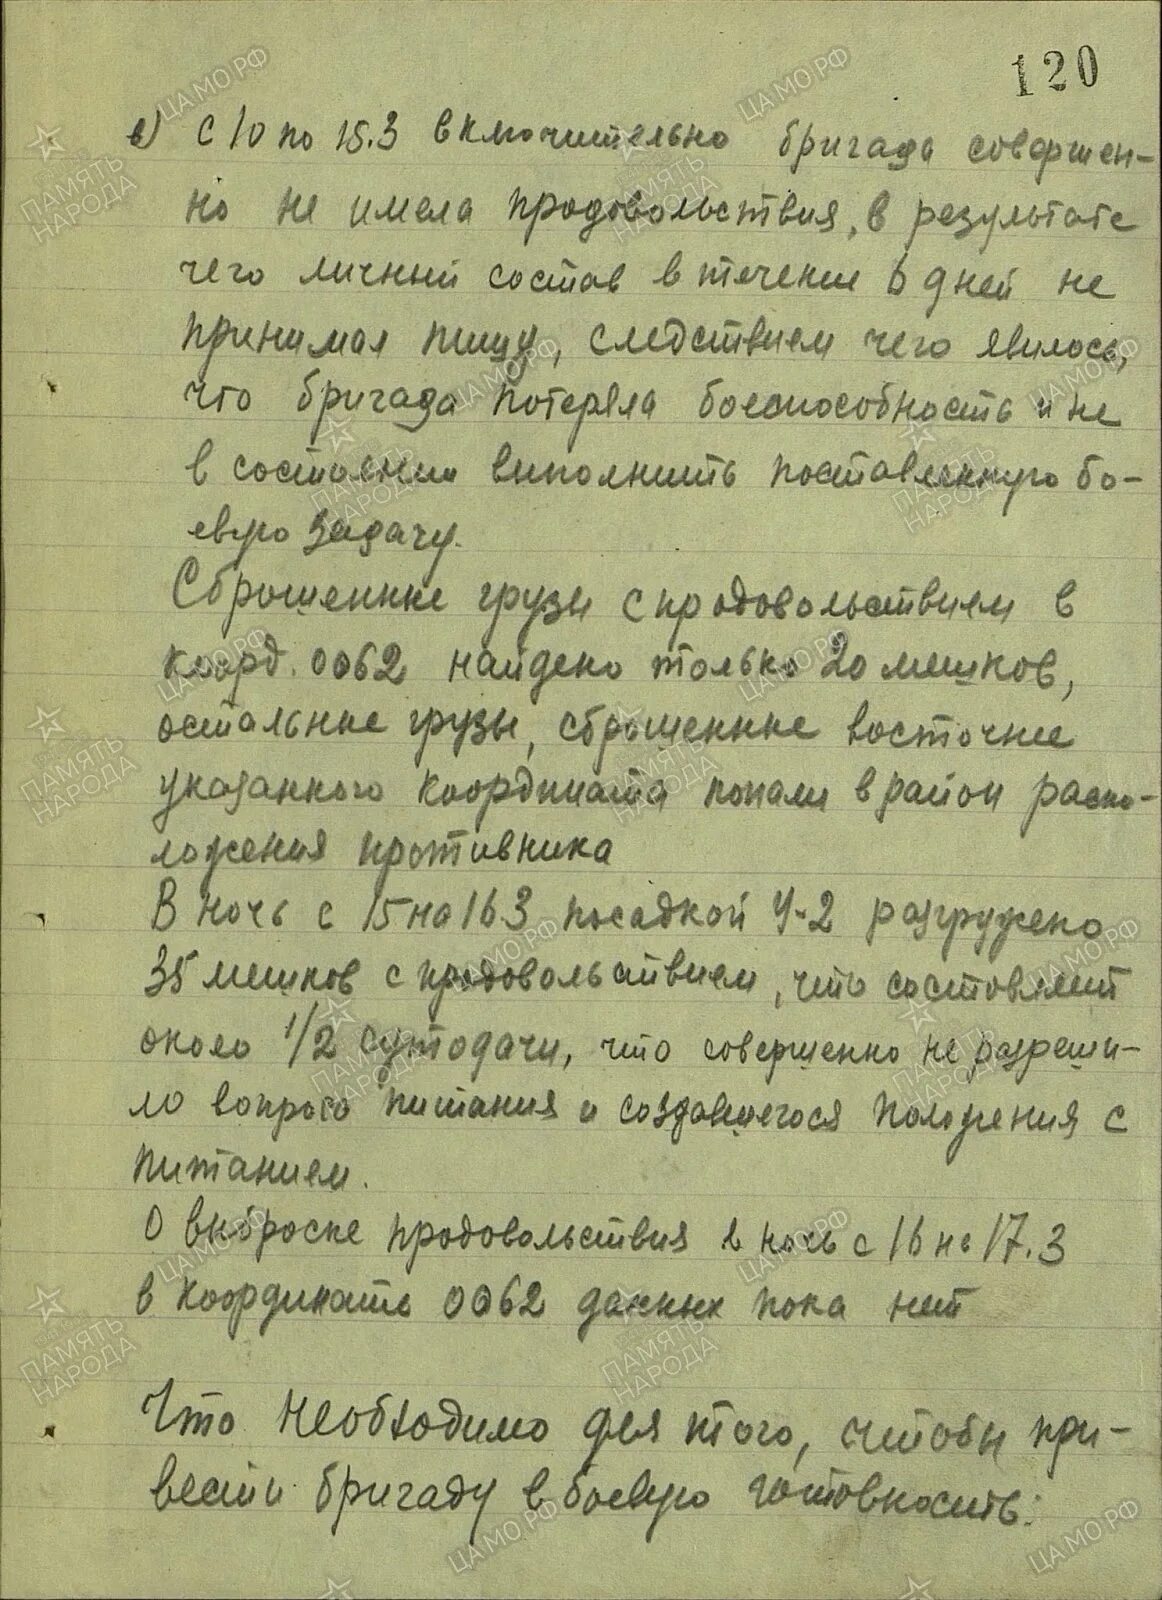 120
в) С 10 по 15.3 включительно бригада совершен-
но не имела продовольствия, в результате
чего личный состав в течение 6 дней не
принимал пищу, следствием чего явилось,
что бригада потеряла боеспособность и не
в состоянии выполнить поставленную бо-
евую задачу.
Сброшенные грузы с продовольствием в
коорд. 0062 найдено только 20 мешков,
остальные грузы, сброшенные восточнее
указанного координата попали в район распо-
ложения противника
В ночь с 15 на 16 3 посадкой У-2 разгружено
35 мешков с продовольствием, что составляет
около 1/2 сутодачи, что совершенно не разреши-
ло вопроса питания и создавшегося положения с
питанием.
О выброске продовольствия в ночь с 16 на 17.3
в координаты 0062 данных пока нет
Что необходимо для того, чтобы при-
вести бригаду в боевую готовность:
ЦА МО РФ
ПАМЯТЬ НАРОДА